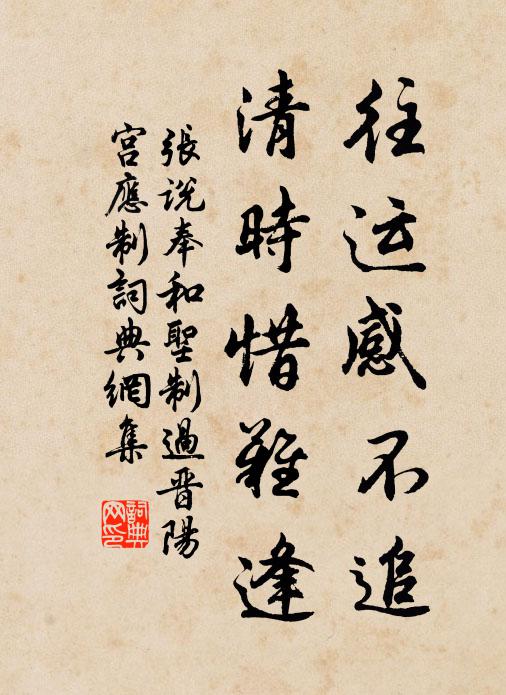 往运感不追
清時惜難逢
張说奉和聖制過晋陽
宮應制詞典網集
詞典
网印